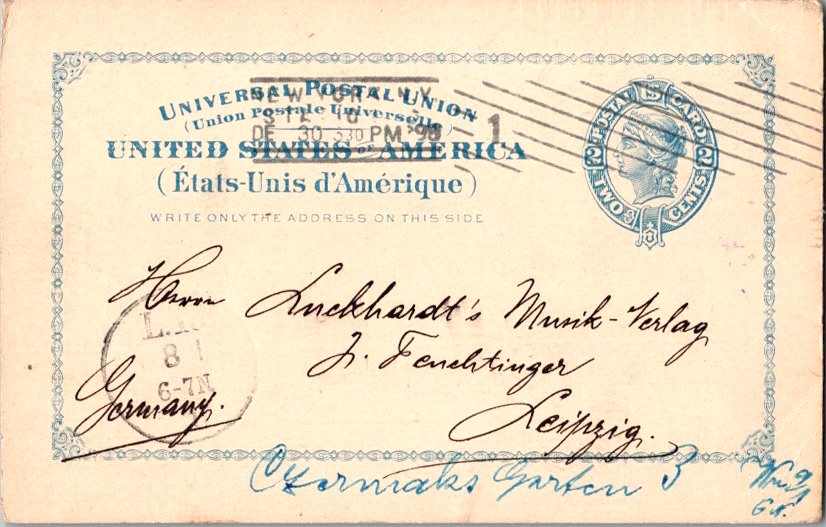 UNIVERSAL POSTAL UNION
(Union Postale Universelle)
UNITED STATES OF AMERICA
(États-Unis d'Amérique)
WRITE ONLY THE ADDRESS ON THIS SIDE
NEW YORK N.Y.
DE 30 330 PM '98
1
POSTAL CARD
2 2
TWO CENTS
Herrn Luckhardt's Musik-Verlag
J. Feuchtinger
Germany.
Leipzig.
8 1
6-7N
Czermaks Garten 3